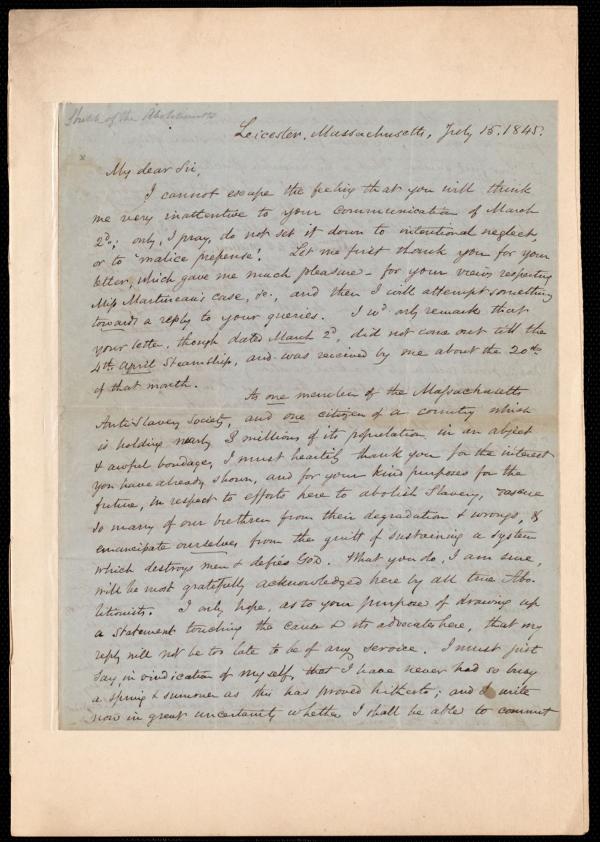 Sketch of the Abolitionists
Leicester, Massachusetts, July 15. 1845.
My dear Sir,
I cannot escape the feeling that you will think
me very inattentive to your communication of March
2d.; only, I pray, do not set it down to intentional neglect,
or to 'malice prepense'. Let me first thank you for your
letter, which gave me much pleasure - for your views respecting
Miss Martineau's case, &c., and then I will attempt something
towards a reply to your queries. I wd. only remark that
your letter, though dated March 2d, did not come out till the
4th April Steamship, and was received by me about the 20th.
of that month.
As one member of the Massachusetts
Anti Slavery Society, and one citizen of a country which
is holding nearly 3 millions of its population in an abject
& awful bondage, I must heartily thank you for the interest
you have already shown, and for your kind purposes for the
future, in respect to efforts here to abolish Slavery, rescue
so many of our brethren from their degradation & wrongs, &
emancipate ourselves from the guilt of sustaining a system
which destroys men & defies God. What you do, I am sure,
will be most gratefully acknowledged here by all true Abo-
litionists. I only hope, as to your purpose of drawing up
a statement touching the cause & its advocates here, that my
reply will not be too late to be of any service. I must just
say, in vindication of myself, that I have never had so busy
a spring & summer as this has proved hitherto; and I write
now in great uncertainty whether I shall be able to commit